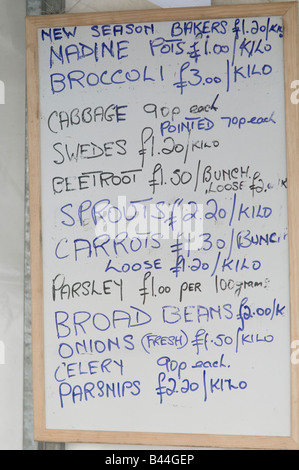 NEW SEASON BAKERS £1.20/KILO
NADINE POTS £1.00/KILO
BROCCOLI £3.00/KILO
CABBAGE 90p each
POINTED 70p each
SWEDES £1.20/KILO
BEETROOT £1.50/BUNCH.
LOOSE £2.00/K
SPROUTS £2.20/KILO
CARROTS £1.30/BUNCH
LOOSE £1.20/KILO
PARSLEY £1.00 per 100grams
BROAD BEANS £2.00/K
ONIONS (FRESH) £1.50/KILO
CELERY 90p each.
PARSNIPS £2.20/KILO
alamy
B44GEP
www.alamy.com